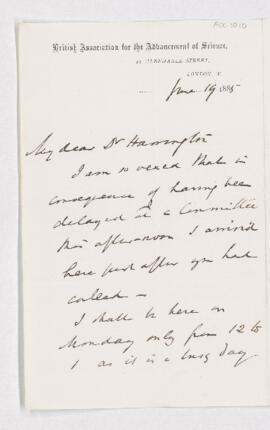 ACC-1010
British Association for the Advancement of Science,
22 ALBEMARLE STREET,
LONDON, W.
June 19 1885
My dear Dr Harrington
I am so vexed that in
consequence of having been
delayed at a Committee
this afternoon I arrived
here just after you had
called —
I shall be here on
Monday only from 12 to
1 as it is a busy day